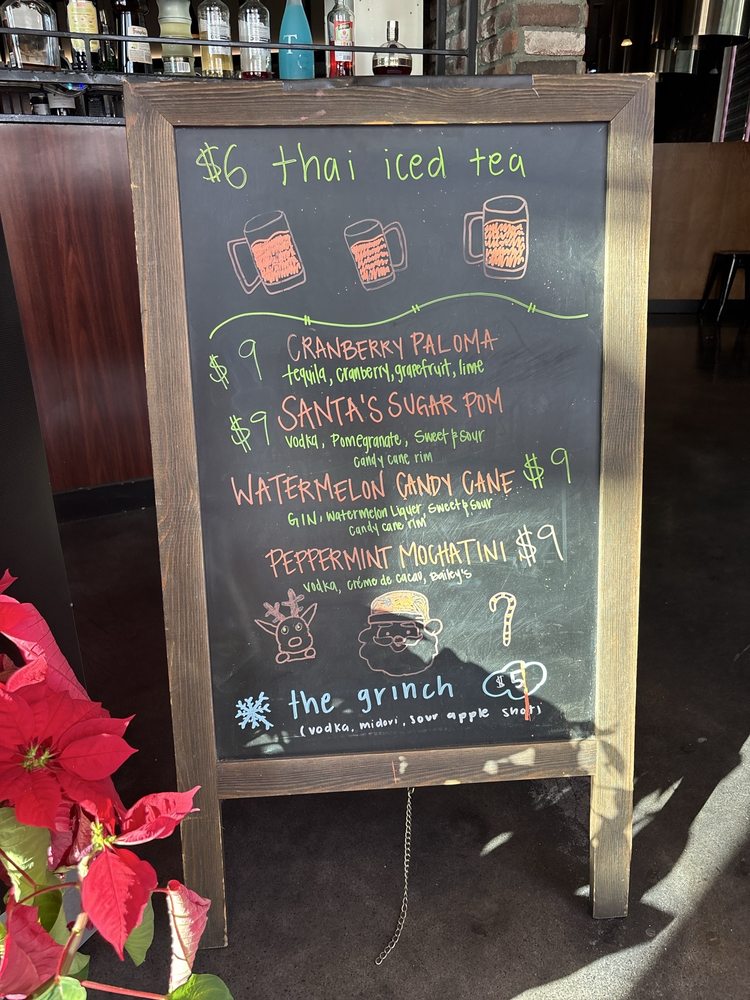 $6 thai iced tea
$9 CRANBERRY PALOMA
tequila, cranberry, grapefruit, lime
$9 SANTA'S SUGAR POM
vodka, Pomegranate, Sweet & Sour
candy cane rim
WATERMELON CANDY CANE $9
GIN, Watermelon Liquer, Sweet & Sour
candy cane rim
PEPPERMINT MOCHATINI $9
vodka, créme de cacao, Bailey's
the grinch $5
(vodka, midori, sour apple shot)